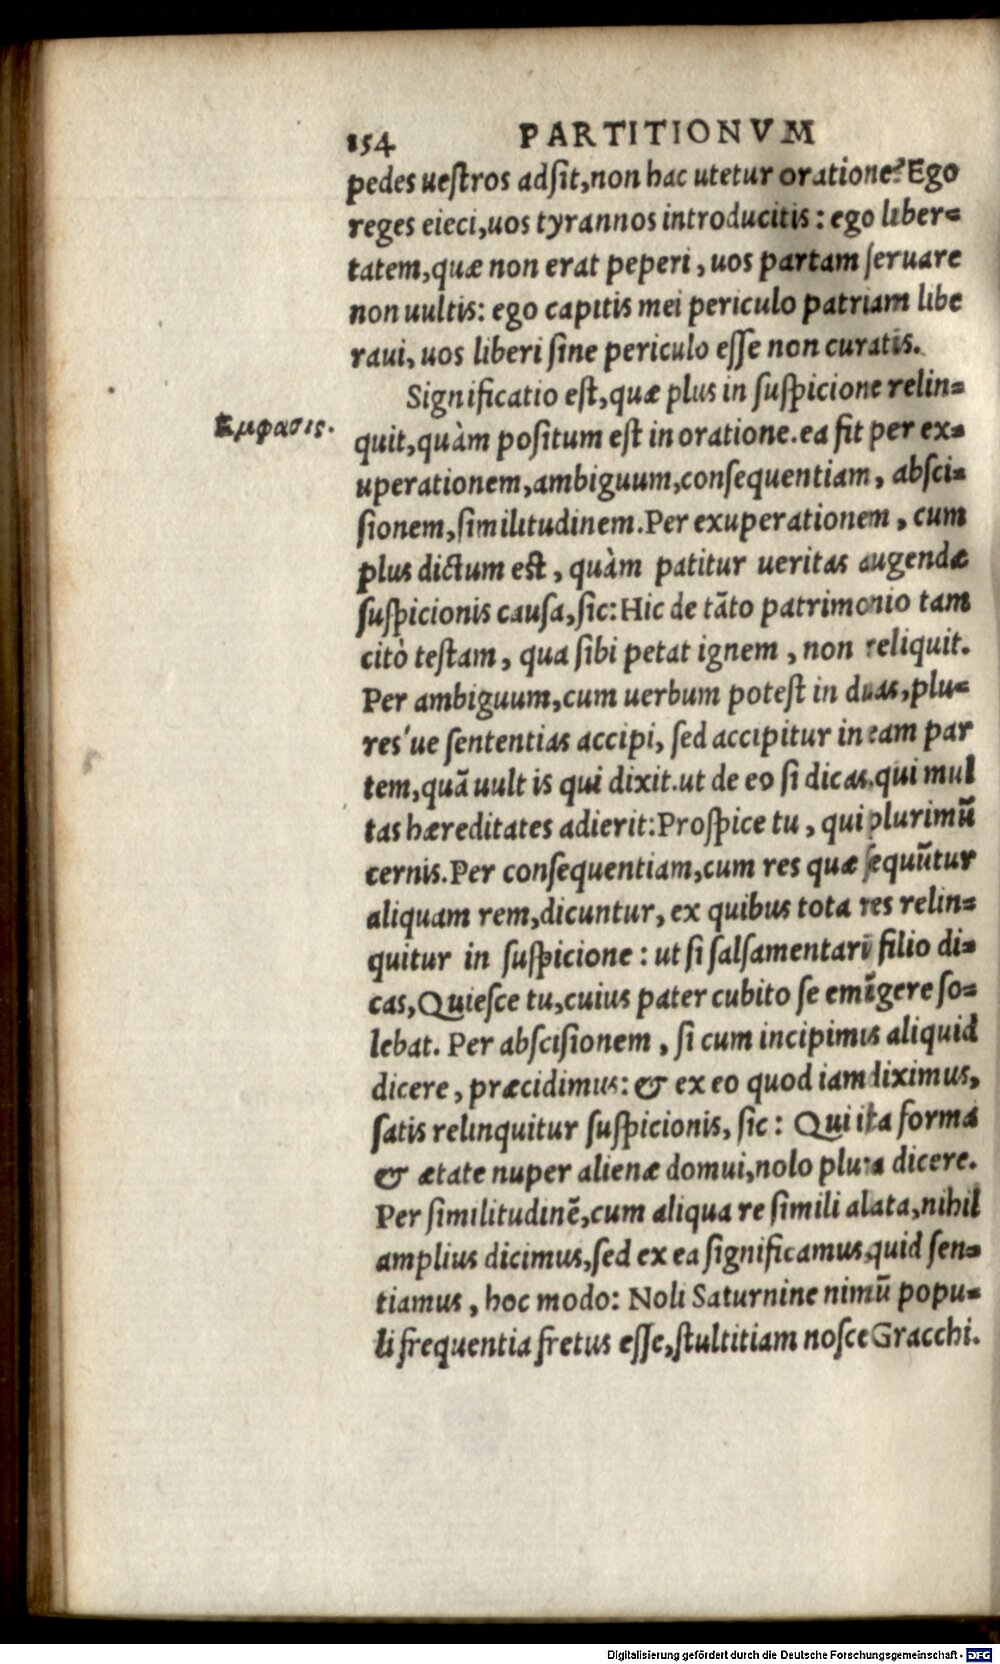 154 PARTITIONVM
pedes uestros adsit,non hac utetur oratione? Ego
reges eieci,uos tyrannos introducitis: ego liber=
tatem,quæ non erat peperi, uos partam seruare
non uultis: ego capitis mei periculo patriam libe
raui, uos liberi sine periculo esse non curatis.
Significatio est,quæ plus in suspicione relin=
Εμφασις.
quit,quàm positum est in oratione.ea fit per ex=
uperationem,ambiguum,consequentiam, absci=
sionem,similitudinem.Per exuperationem, cum
plus dictum est, quàm patitur ueritas augendæ
suspicionis causa,sic:Hic de tāto patrimonio tam
citò testam, qua sibi petat ignem, non reliquit.
Per ambiguum,cum uerbum potest in duas,plu=
res'ue sententias accipi, sed accipitur in eam par
tem,quā uult is qui dixit.ut de eo si dicas,qui mul
tas hæreditates adierit:Prospice tu, qui plurimū
cernis.Per consequentiam,cum res quæ sequūtur
aliquam rem,dicuntur, ex quibus tota res relin=
quitur in suspicione: ut si salsamentarij filio di=
cas,Quiesce tu,cuius pater cubito se emūgere so=
lebat. Per abscisionem, si cum incipimus aliquid
dicere, præcidimus: & ex eo quod iam diximus,
satis relinquitur suspicionis, sic: Qui ita forma
& ætate nuper alienæ domui,nolo plura dicere.
Per similitudinē,cum aliqua re simili alata,nihil
amplius dicimus,sed ex ea significamus,quid sen=
tiamus, hoc modo: Noli Saturnine nimiū popu=
li frequentia fretus esse,stultitiam nosce Gracchi.
Digitalisierung gefördert durch die Deutsche Forschungsgemeinschaft - DFG